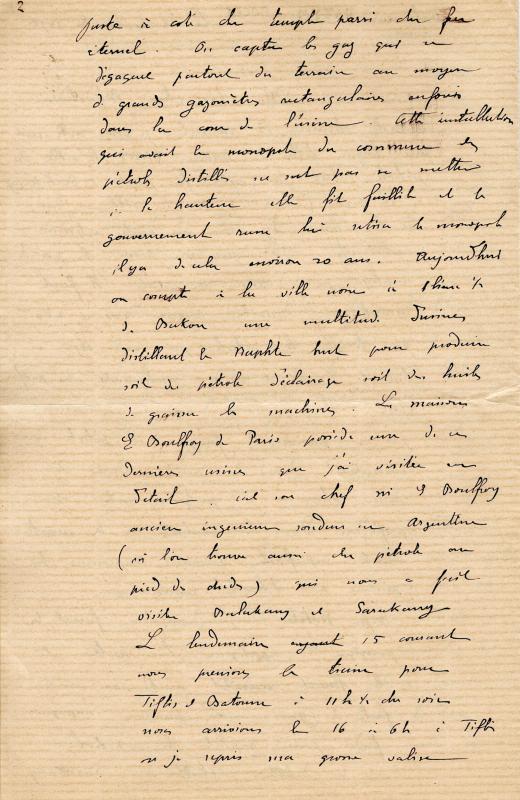 2
juste à coté du temple parsi du feu
éternel. On capte les gaz qui se
dégagent partout du terrain au moyen
de grands gazomètres rectangulaires enfouis
dans la cour de l'usine. Cette installation
qui avait le monopole du commerce des
pétroles distillés ne sut pas se mettre
à la hauteur elle fit faillite et le
gouvernement russe lui retira le monopole
il y a de cela environ 20 ans. Aujourd'hui
on compte à la ville noire à 1 lieue ½
de Bakou une multitude d'usines
distillant le Naphte brut pour produire
soit du pétrole d'éclairage soit des huiles
de graisse les machines. La maison
Boulfroy de Paris possède une de ces
dernières usines que j'ai visitée en
détail. c'est son chef Mr Boulfroy
ancien ingénieur sondeur en Argentine
(où l'on trouve aussi du pétrole au
pied des Andes) qui nous a fait
visiter Balakany et Sarakany
Le lendemain 15 courant
nous prenions le train pour
Tiflis et Batoum à 11h ½ du soir
nous arrivions le 16 à 6h à Tiflis
où je repris ma grosse valise